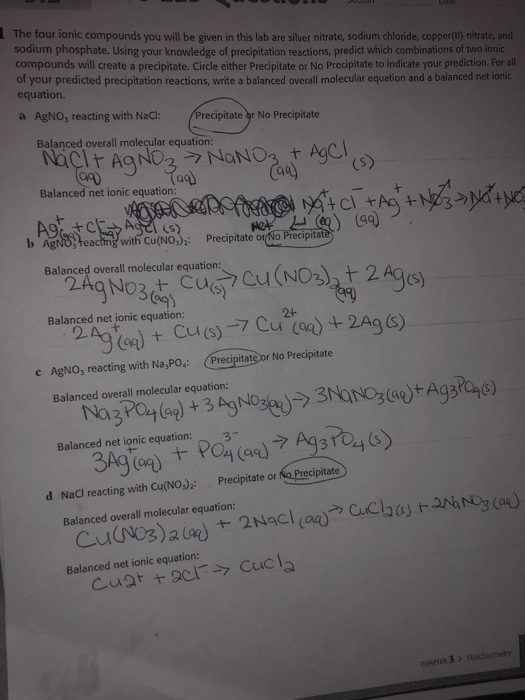 1 The four ionic compounds you will be given in this lab are silver nitrate, sodium chloride, copper(II) nitrate, and
sodium phosphate. Using your knowledge of precipitation reactions, predict which combinations of two ionic
compounds will create a precipitate. Circle either Precipitate or No Precipitate to indicate your prediction. For all
of your predicted precipitation reactions, write a balanced overall molecular equation and a balanced net ionic
equation.
a AgNO₃ reacting with NaCl: Precipitate or No Precipitate
Balanced overall molecular equation:
NaCl + AgNO₃ → NaNO₃ + AgCl (s)
(aq) (aq) (aq)
Balanced net ionic equation:
Na⁺ + Cl⁻ + Ag⁺ + NO₃ → Na⁺ + NO
Ag⁺(aq) + Cl → AgCl (s) Net (aq) (aq)
b AgNO₃ reacting with Cu(NO₃)₂: Precipitate or No Precipitate
Balanced overall molecular equation:
2AgNO₃(aq) + Cu(s) → Cu(NO₃)₂(aq) + 2Ag(s)
Balanced net ionic equation:
2Ag⁺(aq) + Cu(s) → Cu²⁺(aq) + 2Ag(s)
c AgNO₃ reacting with Na₃PO₄: Precipitate or No Precipitate
Balanced overall molecular equation:
Na₃PO₄(aq) + 3AgNO₃(aq) → 3NaNO₃(aq) + Ag₃PO₄(s)
Balanced net ionic equation:
3Ag⁺(aq) + PO₄³⁻(aq) → Ag₃PO₄(s)
d NaCl reacting with Cu(NO₃)₂: Precipitate or No Precipitate
Balanced overall molecular equation:
Cu(NO₃)₂(aq) + 2NaCl(aq) → CuCl₂(s) + 2NaNO₃(aq)
Balanced net ionic equation:
Cu²⁺ + 2Cl⁻ → CuCl₂
CHAPTER 3 > Stoichiometry